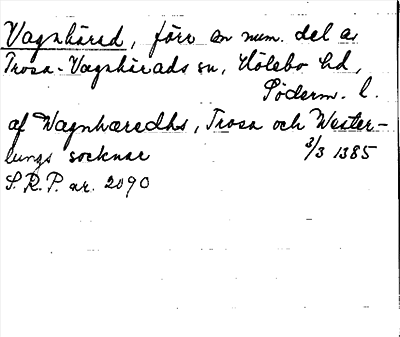 Vagnhärad, förr en num. del av
Trosa-Vagnhärads sn, Hölebo hd,
Söderm. l.
af Wagnhæredhs, Trosa och Wester-
lungs socknar 3/3 1385
S.R.P. nr. 2090